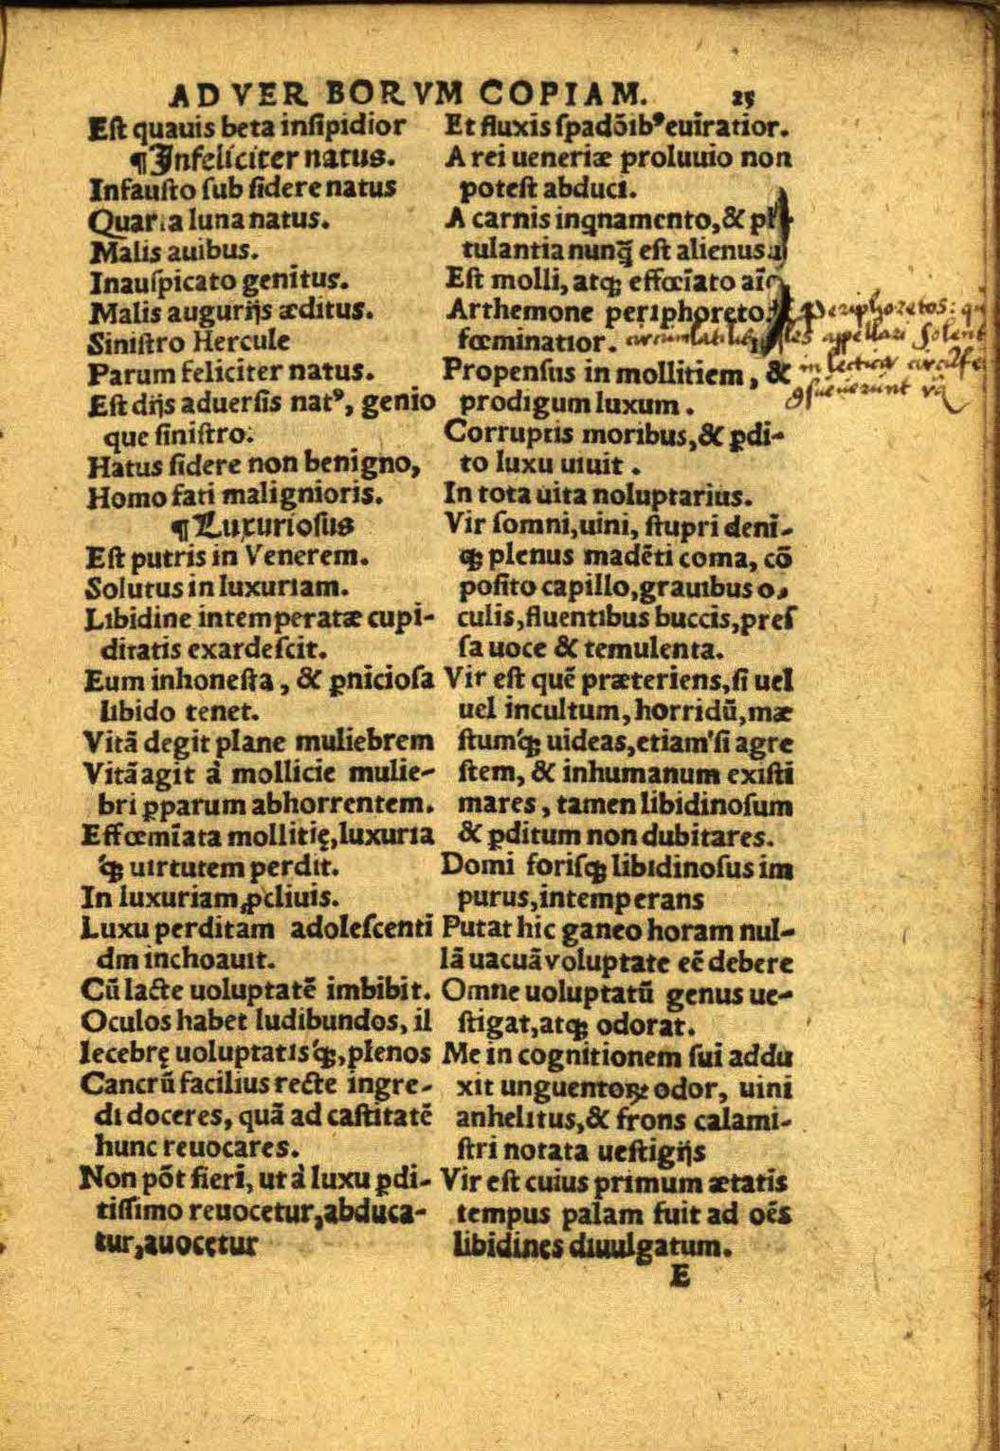 AD VER BORVM COPIAM. 25
Eſt quauis beta inſipidior
¶Infeliciter natus.
Infauſto ſub ſidere natus
Quarta luna natus.
Malis auibus.
Inauſpicato genitus.
Malis augurijs æditus.
Siniſtro Hercule
Parum feliciter natus.
Eſt dijs aduerſis natꝰ, genio
que ſiniſtro.
Hatus ſidere non benigno,
Homo fati malignioris.
¶Luxurioſus
Eſt putris in Venerem.
Solutus in luxuriam.
Libidine intemperatæ cupi-
ditatis exardeſcit.
Eum inhoneſta, & ꝑnicioſa
libido tenet.
Vitā degit plane muliebrem
Vitā agit à mollicie mulie-
bri ꝑparum abhorrentem.
Effœmīata mollitię, luxuria
ꝗ́ꝫ uirtutem perdit.
In luxuriam ꝓcliuis.
Luxu perditam adoleſcenti
dm inchoauit.
Cū lacte uoluptatē imbibit.
Oculos habet ludibundos, il
lecebrę uoluptatisꝗ́ꝫ, plenos
Cancrū facilius recte ingre-
di doceres, quā ad caſtitatē
hunc reuocares.
Non pōt fieri, ut à luxu ꝑdi-
tiſſimo reuocetur, abduca-
tur, auocetur
Et fluxis ſpadōibꝰ euiratior.
A rei ueneriæ proluuio non
poteſt abduci.
A carnis inqnamento, &
tulantia nunꝗ̄ eſt alienus
Eſt molli, atꝗꝫ effœīato aīo
Arthemone periphoreto
fœminatior.
Periphoretos:
appellari ſolent
in lectica
Propenſus in mollitiem, &
prodigum luxum.
Corruptis moribus, & ꝑdi-
to luxu uiuit.
In tota uita noluptarius.
Vir ſomni, uini, ſtupri deni-
ꝗꝫ plenus madēti coma, cō
poſito capillo, grauibus o-
culis, fluentibus buccis, preſ
ſa uoce & temulenta.
Vir eſt quē præteriens, ſi uel
uel incultum, horridū, mæ
ſtumꝗ́ꝫ uideas, etiam'ſi agre
ſtem, & inhumanum exiſti
mares, tamen libidinoſum
& ꝑditum non dubitares.
Domi foriſꝗꝫ libidinoſus im
purus, intemperans
Putat hic ganeo horam nul-
lā uacuā voluptate eē debere
Omne uoluptatū genus ue-
ſtigat, atꝗꝫ odorat.
Me in cognitionem ſui addu
xit unguentoꝝ odor, uini
anhelitus, & frons calami-
ſtri notata ueſtigijs
Vir eſt cuius primum ætatis
tempus palam fuit ad oēs
libidines diuulgatum.
E